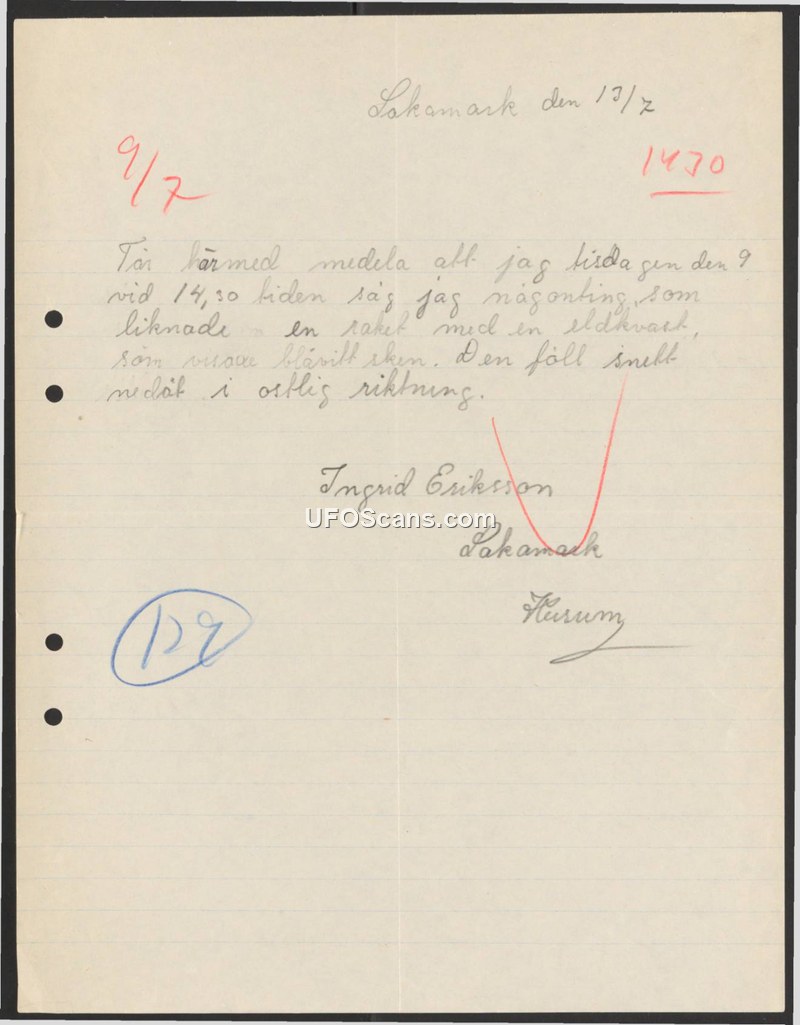 Lakamark den 13/7
9/7
1430
Får härmed medela att jag tisdagen den 9
vid 14,30 tiden såg jag någonting, som
liknade en raket med en eldkvast,
som visade blåvitt sken. Den föll snett
nedåt i ostlig riktning.
Ingrid Eriksson
UFOScans.com
Lakamark
Husum
129